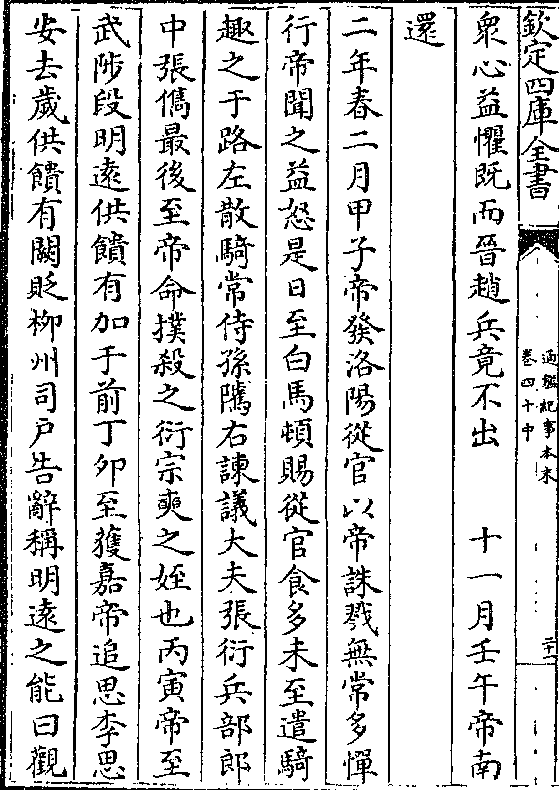 欽定四庫全書
通鑑紀事本末
卷四十中
二十一
衆心益懼既而晉趙兵竟不出　十一月壬午帝南
還
二年春二月甲子帝發洛陽從官以帝誅戮無常多憚
行帝聞之益怒是日至白馬頓賜從官食多未至遣騎
趣之于路左散騎常侍孫隲右諫議大夫張衍兵部郎
中張儁最後至帝命撲殺之衍宗奭之姪也丙寅帝至
武陟段明遠供饋有加于前丁卯至獲嘉帝追思李思
安去歲供饋有闕貶柳州司戶告辭稱明遠之能曰觀